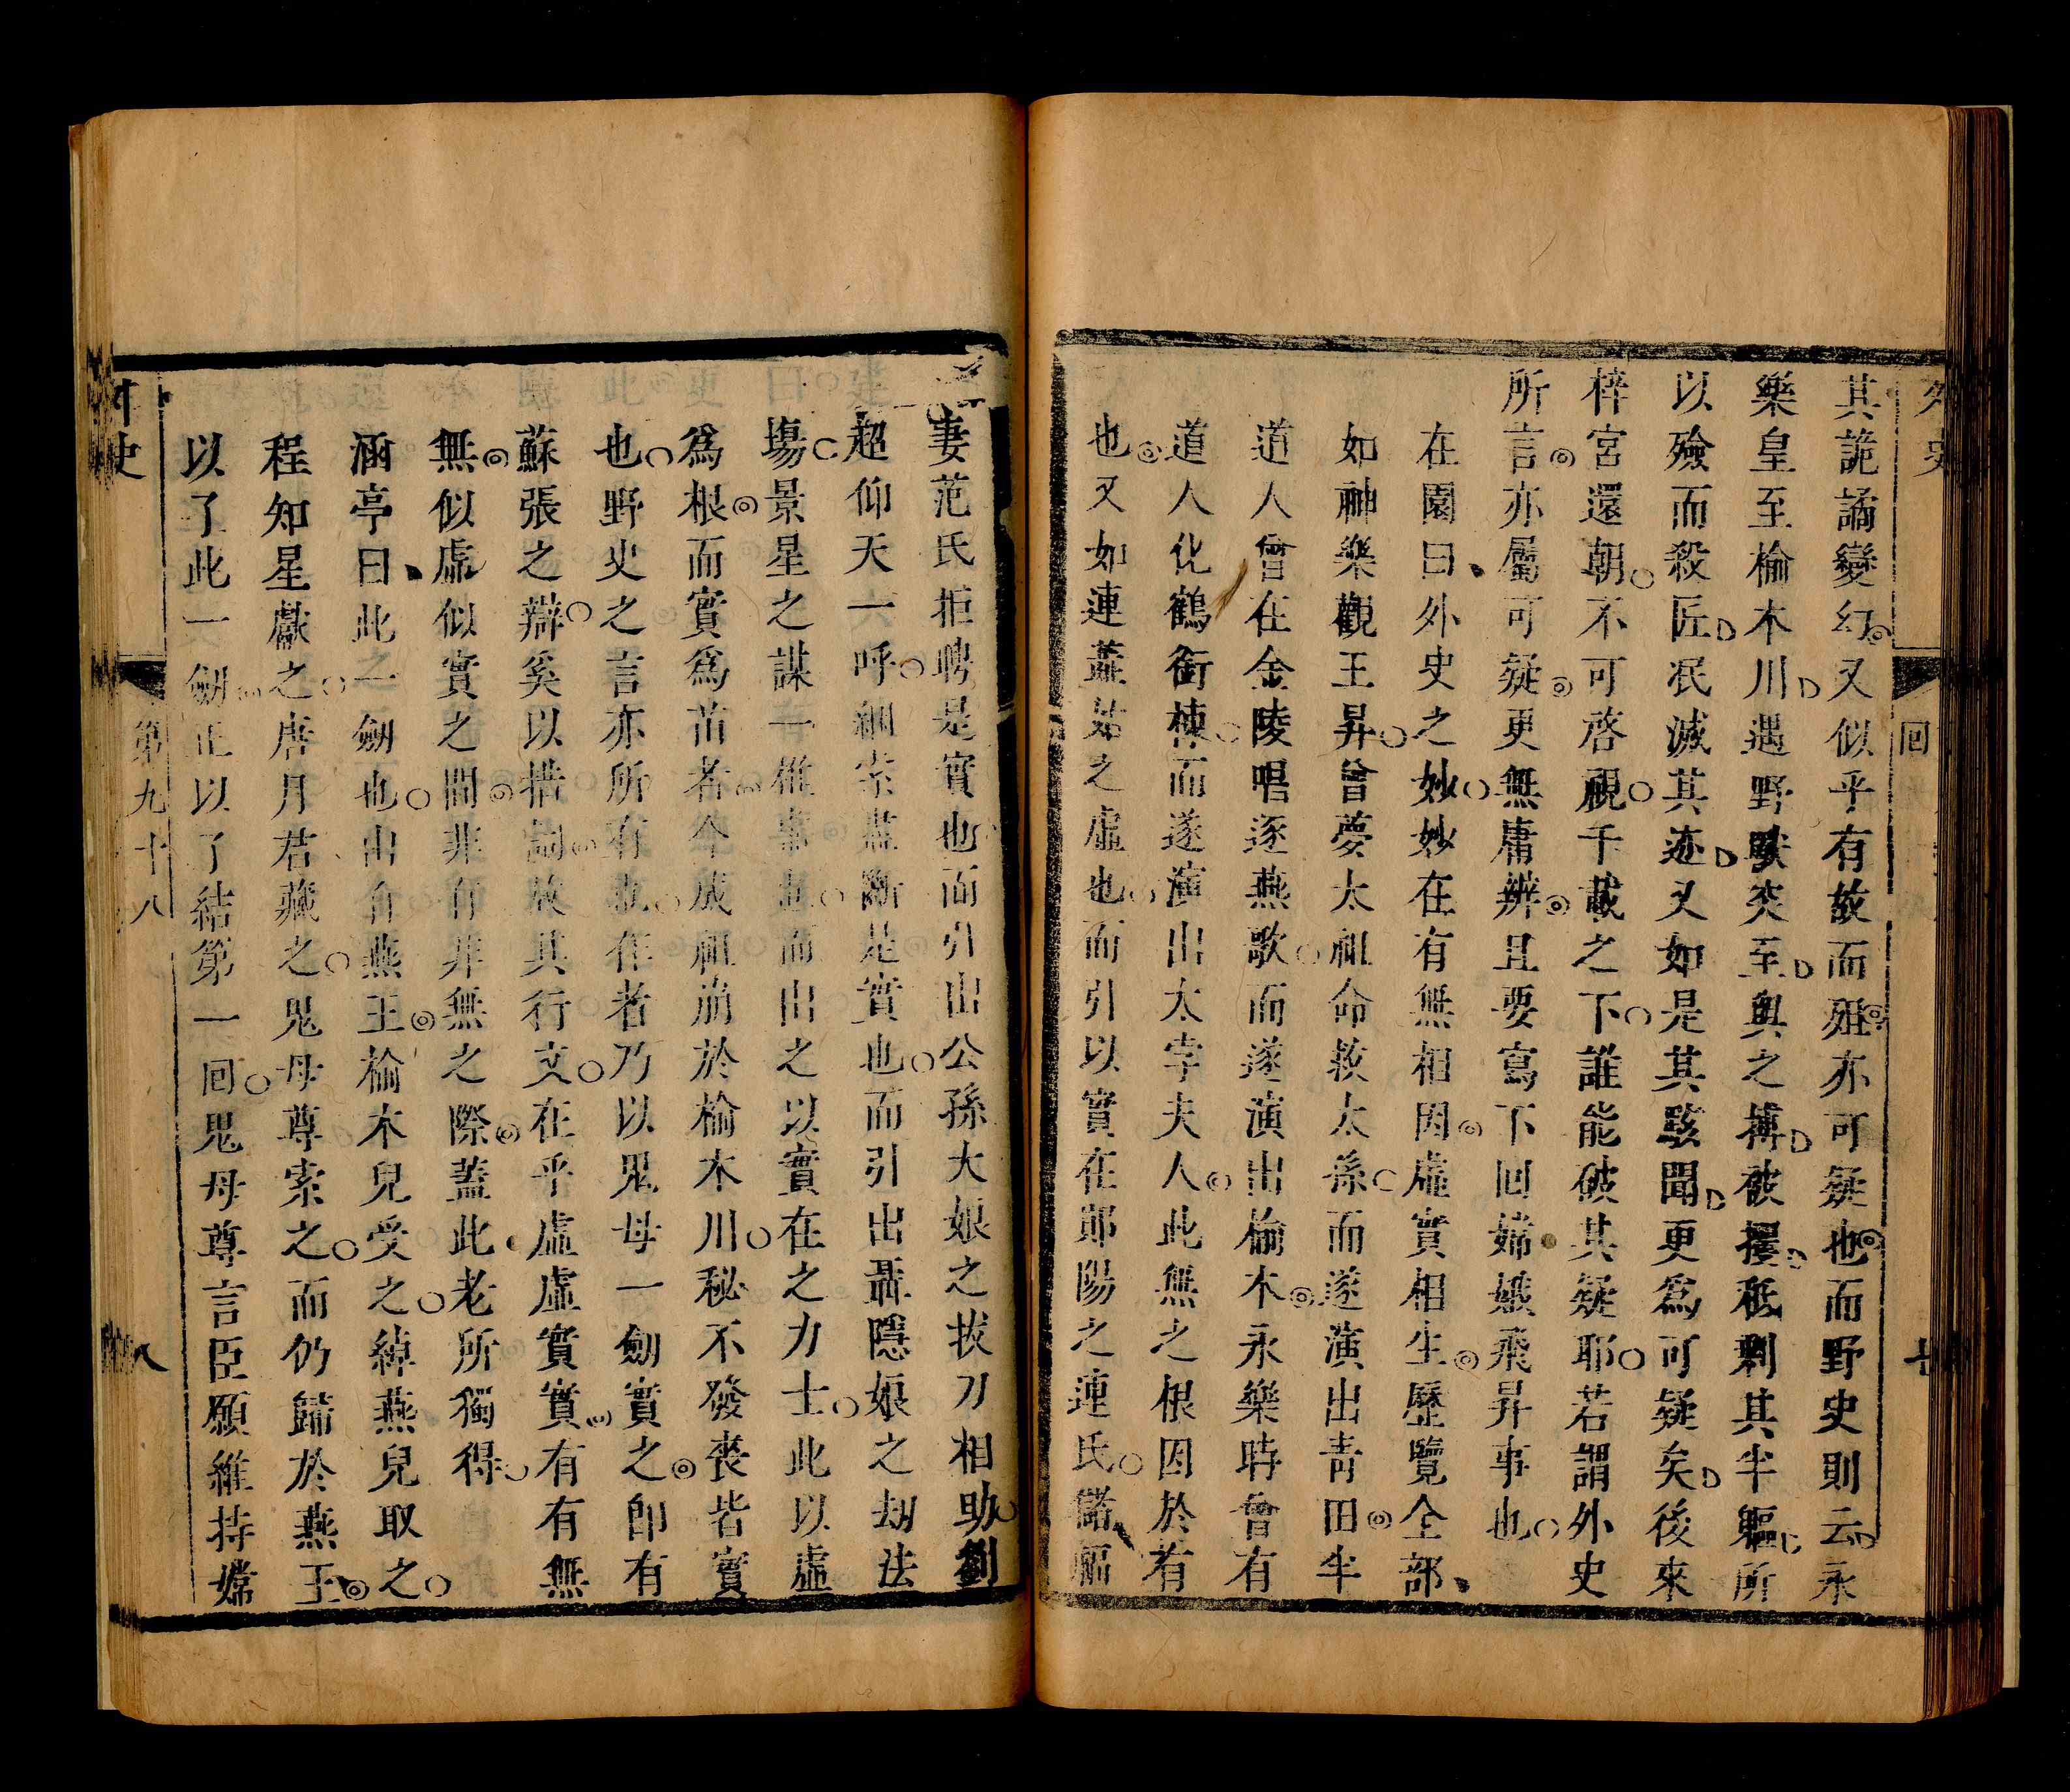 其詭譎變幻又似乎有故而殂亦可疑也而野史則云永
樂皇至榆木川遇野獸突至與之搏被攫秪剩其半軀所
以殮而殺匠泯滅其迹又如是其駭聞更爲可疑矣後來
梓宮還朝不可啓視千載之下誰能破其疑耶若謂外史
所言亦屬可疑更無庸辨且要寫下回嫦娥飛昇事也
在園曰外史之妙妙在有無相因虛實相生歷覽全部
如神樂觀王昇曾夢太祖命救太孫而遂演出青田半
道人曾在金陵唱逐燕歌而遂演出榆木永樂時曾有
道人化鶴銜楝而遂演出太孛夫人此無之根因於有
也又如連蕋姑之虛也而引以實在鄖陽之連氏儲福
妻范氏拒聘是實也而引出公孫大娘之拔刀相助劉
超仰天一呼綑索盡斷是實也而引出聶隱娘之刼法
塲景星之謀一椎事也而出之以實在之力士此以虛
爲根而實爲苗者今成祖崩於榆木川秘不發喪皆實
也野史之言亦所有也作者乃以鬼母一劒實之即有
蘇張之辯奚以措詞故其行文在乎虛虛實實有有無
無似虛似實之間非有非無之際蓋此老所獨得
涵亭曰此一劒也出自燕王榆木兒受之綽燕兒取之
程知星獻之唐月君藏之鬼母尊索之而仍歸於燕王
以了此一劒正以了結第一回鬼母尊言臣願維持嫦
外史
第九十八
八